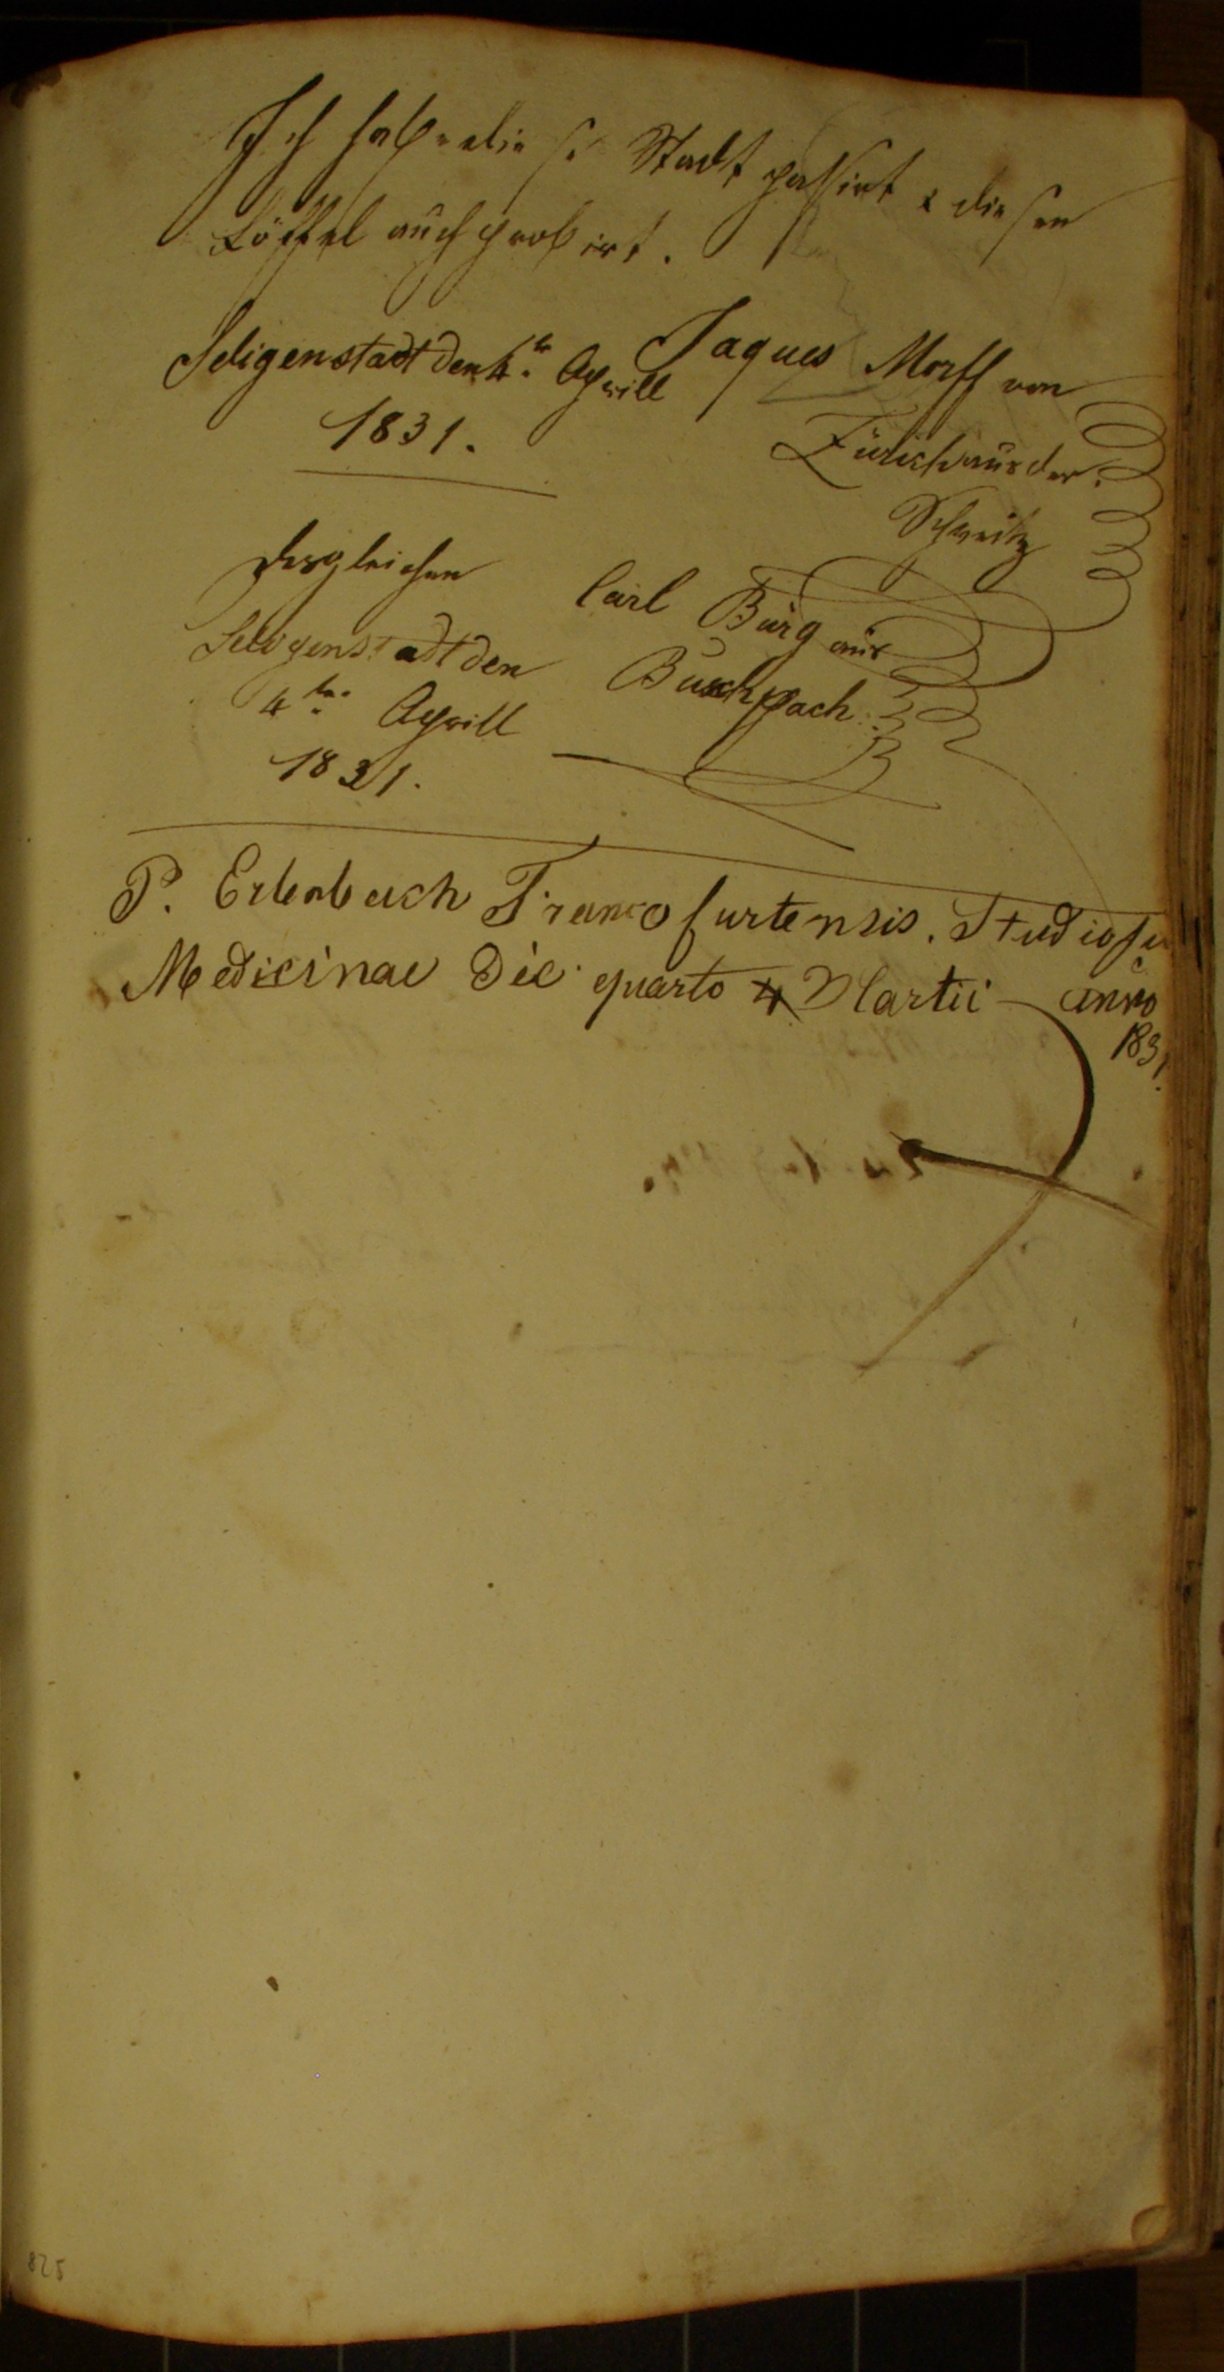 Ich habe diese Stadt passirt & diesen
Löffel auch probirt.
Seligenstadt den 4.tn Aprill
1831.
Jaques Morff von
Zürich aus der
Schweitz
Desgleichen
Seligenstadt den
4.tn Aprill
1831.
Carl Burg aus
P. Erlenbach Francofurtensis. Studiosu
Medicinae Die quarto 4 Martii anno
1831.
825